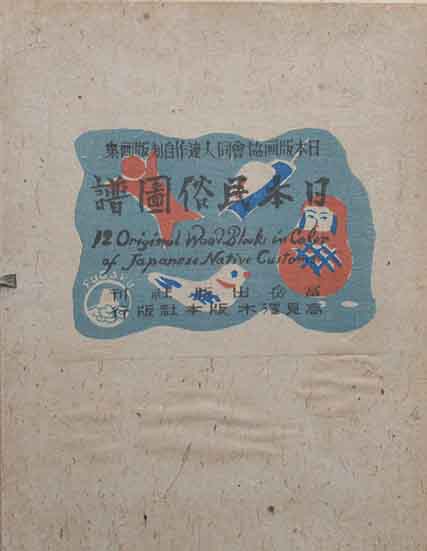 日本版画協會同人連作自刻版画集
日本民俗圖譜
12 Original Wood Blocks in Color
of Japanese Native Customs
富岳出版社刊
高見澤木版本社版行